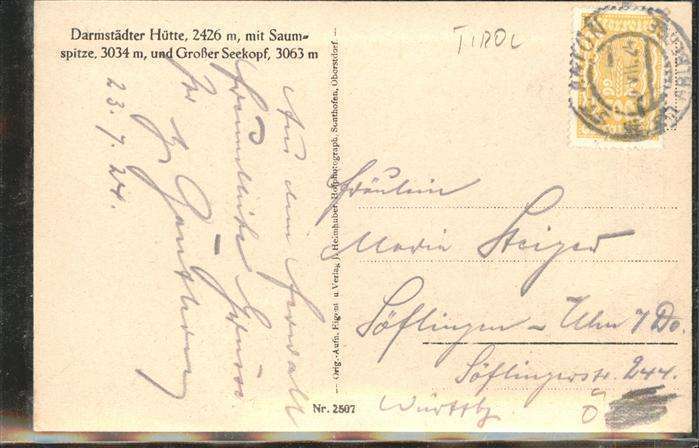 Darmstädter Hütte, 2426 m, mit Saum-
spitze, 3034 m, und Großer Seekopf, 3063 m
TIROL
ST. ANTON
Aus dem Ferwall
freundliche Grüsse
23.7.24.
Orig.-Aufn. Eigent. u. Verlag J. Heimhuber, Hofphotograph, Sonthofen, Oberstdorf
Fräulein
Maria Steiger
Söflingen - Ulm / Do.
Söflingerstr. 244.
Württbg
Nr. 2507